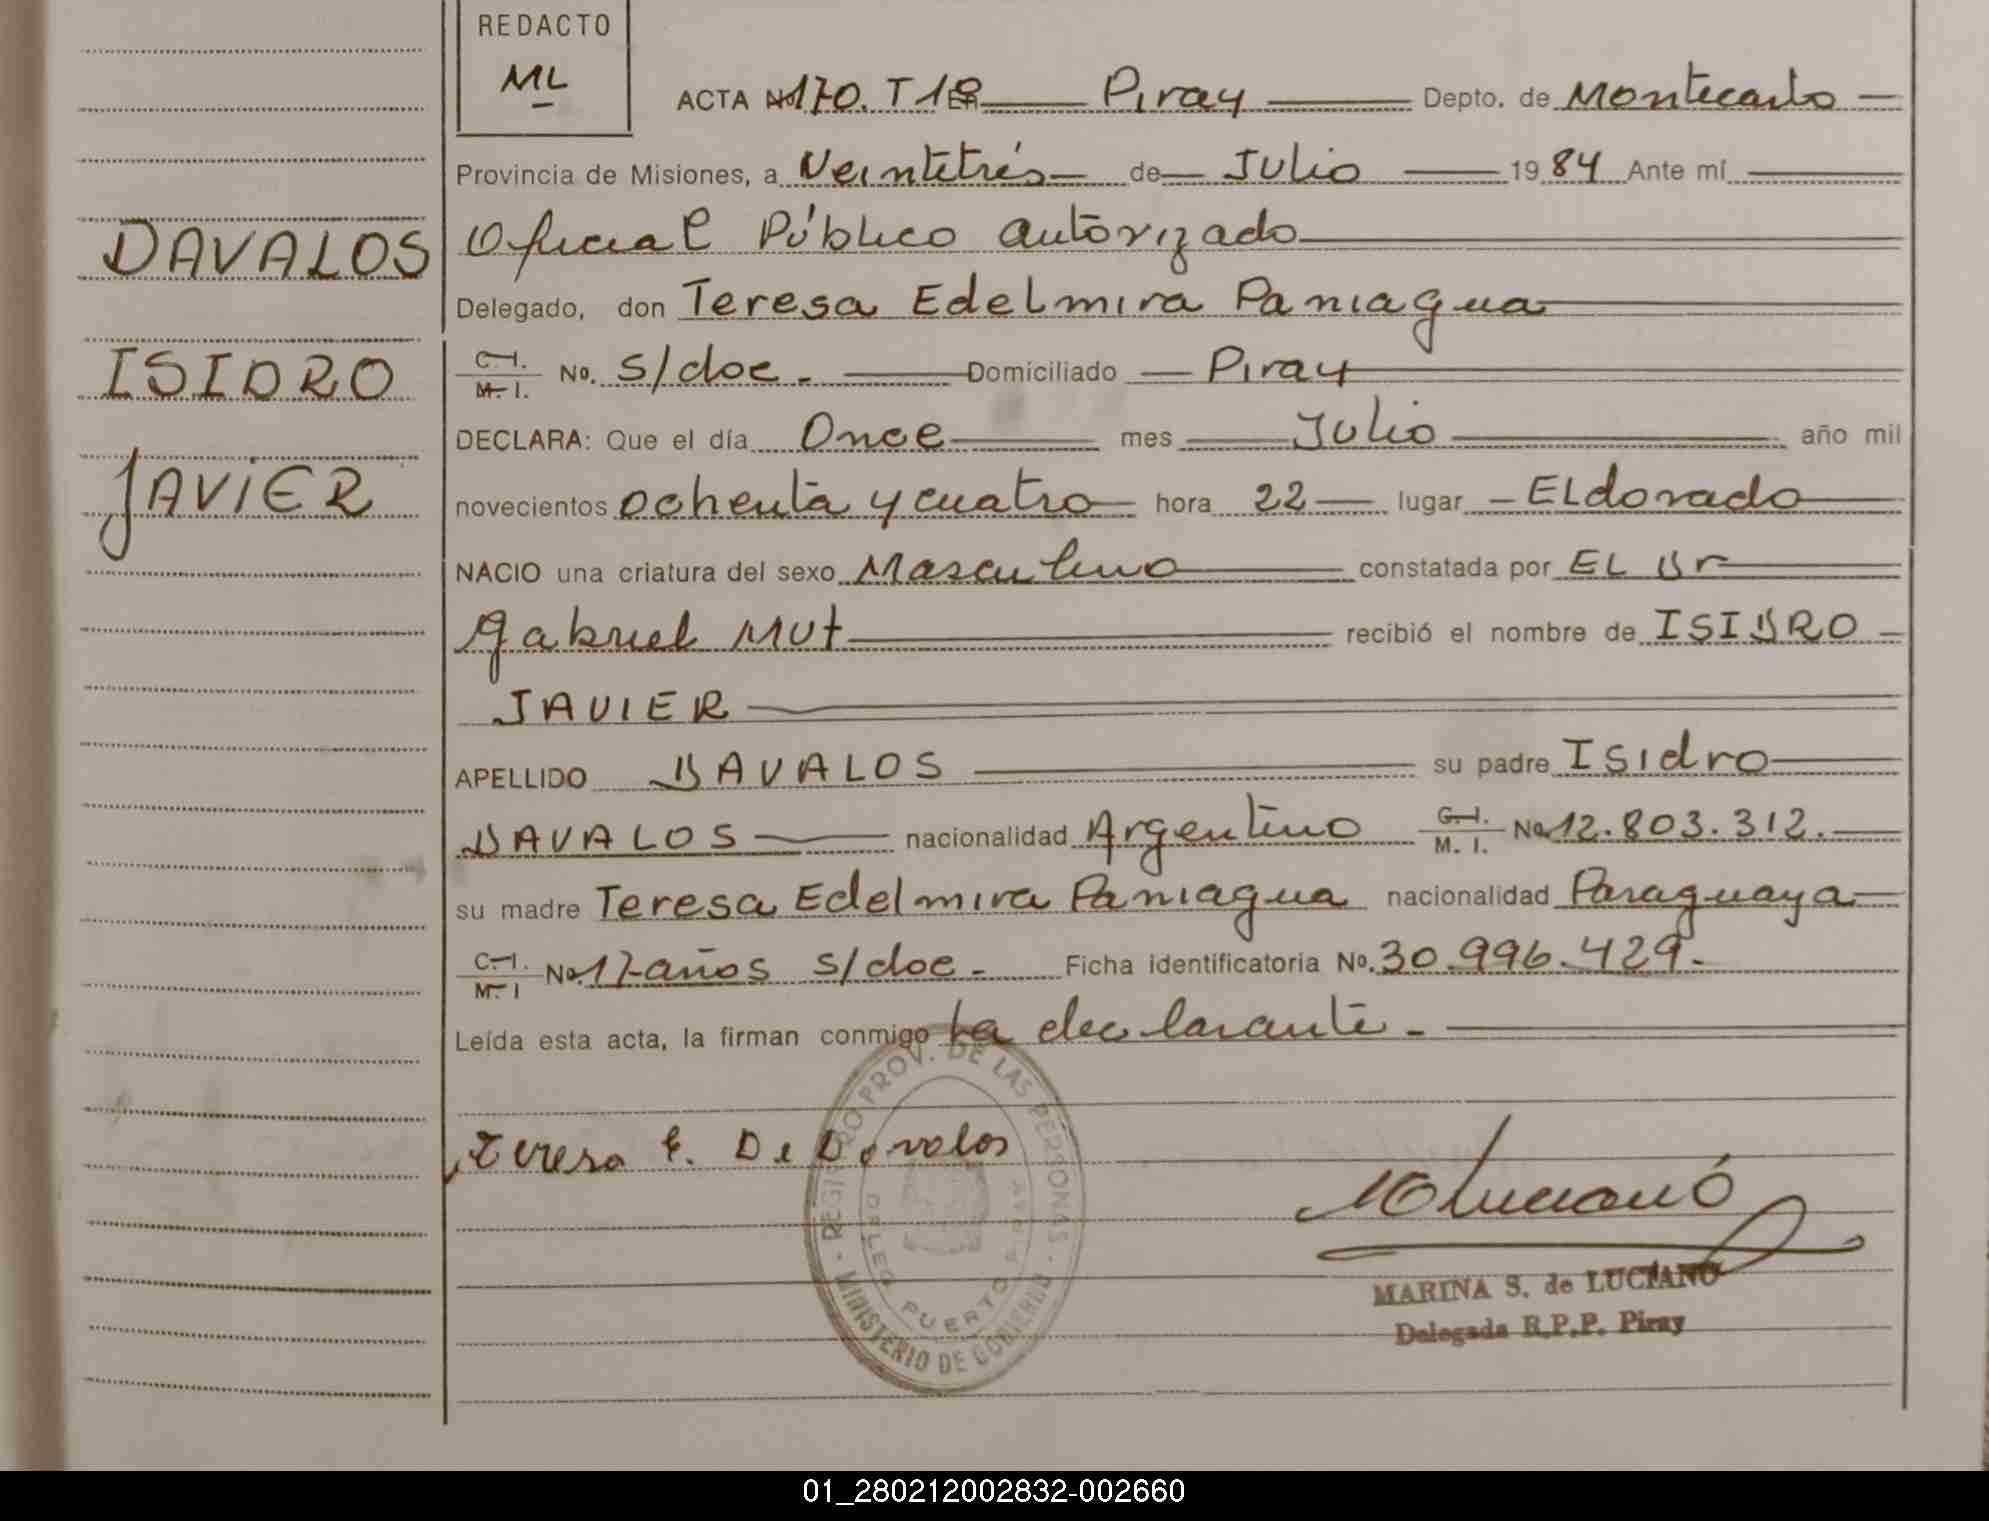 REDACTO
ML
ACTA No 170. T 1º Piray Depto. de Montecarlo
Provincia de Misiones, a Veintetrés de Julio 19 84 Ante mí
Oficial Público autorizado
DAVALOS
Delegado, don Teresa Edelmira Paniagua
C.I. M.I. No. S/doc. Domiciliado Piray
ISIDRO
DECLARA: Que el día Once mes Julio año mil
novecientos ochenta y cuatro hora 22 lugar ELdorado
JAVIER
NACIO una criatura del sexo Masculino constatada por EL Dr
Gabriel Mut recibió el nombre de ISIDRO
JAVIER
APELLIDO DAVALOS su padre Isidro
DAVALOS nacionalidad Argentino C.I. M.I. No 12.803.312.
su madre Teresa Edelmira Paniagua nacionalidad Paraguaya
C.I. M.I No. 17 años s/doc. Ficha identificatoria No. 30.996.429.
Leída esta acta, la firman conmigo La declarante.
Teresa E. De Davalos
REGISTRO PROV. DE LAS PERSONAS
MINISTERIO DE GOBIERNO
DELEG PUERTO
MARINA S. de LUCIANO
Delegada R.P.P. Piray
01_280212002832-002660